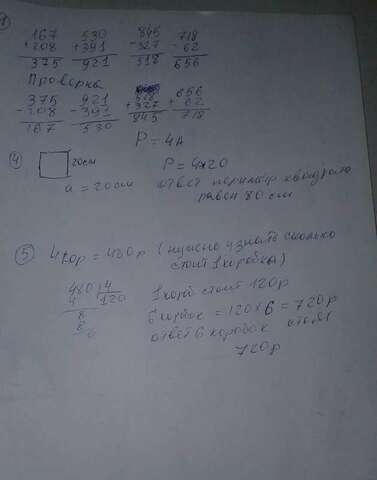 1
167 530 845 718
+208 +391 -327 -62
375 921 518 656
Проверка
375 921 518 656
-208 -391 +327 +62
167 530 845 718
P = 4a
4 20см P = 4×20
a = 20см ответ периметр квадрата
равен 80 см
5 4кор = 480р (нужно узнать сколько
стоит 1 коробка)
480 4 1 кор стоит 120р
4 120
8 6 корбок = 120×6 = 720р
8 ответ 6 коробок стоят
0 720р